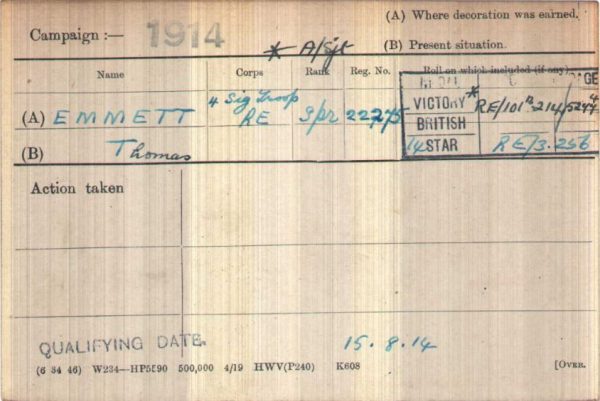 (A) Where decoration was earned.
Campaign :— 1914
* A/Sjt (B) Present situation.
Name Corps Rank Reg. No. Roll on which included (if any)
MEDAL PAGE
4 Sig Troop
(A) EMMETT RE Spr 22275 VICTORY * RE/101 B 214 52444
BRITISH
(B) Thomas 14 STAR RE/3. 256
Action taken
QUALIFYING DATE. 15.8.14
(6 34 46) W234—HP5590 500,000 4/19 HWV(P240) K608 [OVER.